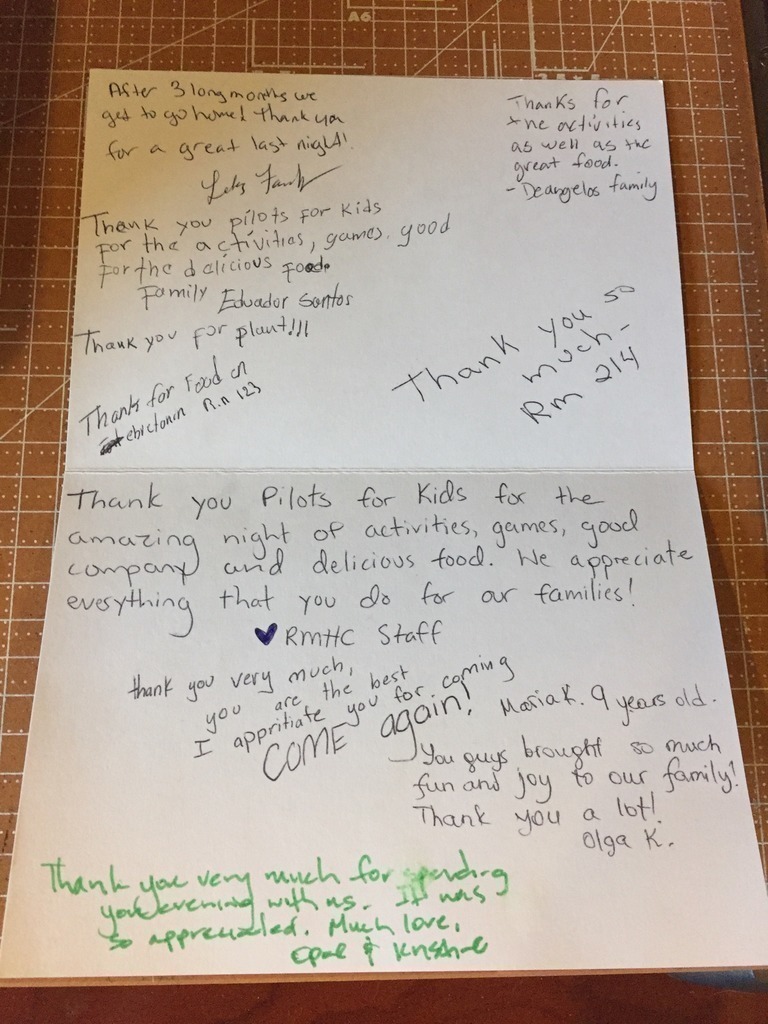 A6
After 3 long months we
get to go home! Thank you
for a great last night!
Thanks for
the activities
as well as the
great food.
- Deangelos family
Thank you pilots for kids
for the activities, games. good
for the dalicious food.
Family Eduador Santos
Thank you for plant!!!
Thanks for Food on
R.n 123
Thank you so
much -
Rm 214
Thank you Pilots for Kids for the
amazing night of activities, games, good
company and delicious food. We appreciate
everything that you do for our families!
RMHC Staff
thank you very much,
you are the best
I appritiate you for coming
COME again!
Maria K. 9 years old.
You guys brought so much
fun and joy to our family!
Thank you a lot!
Olga K.
Thank you very much for spending
your evening with us. It was
so appreciated. Much love,
&